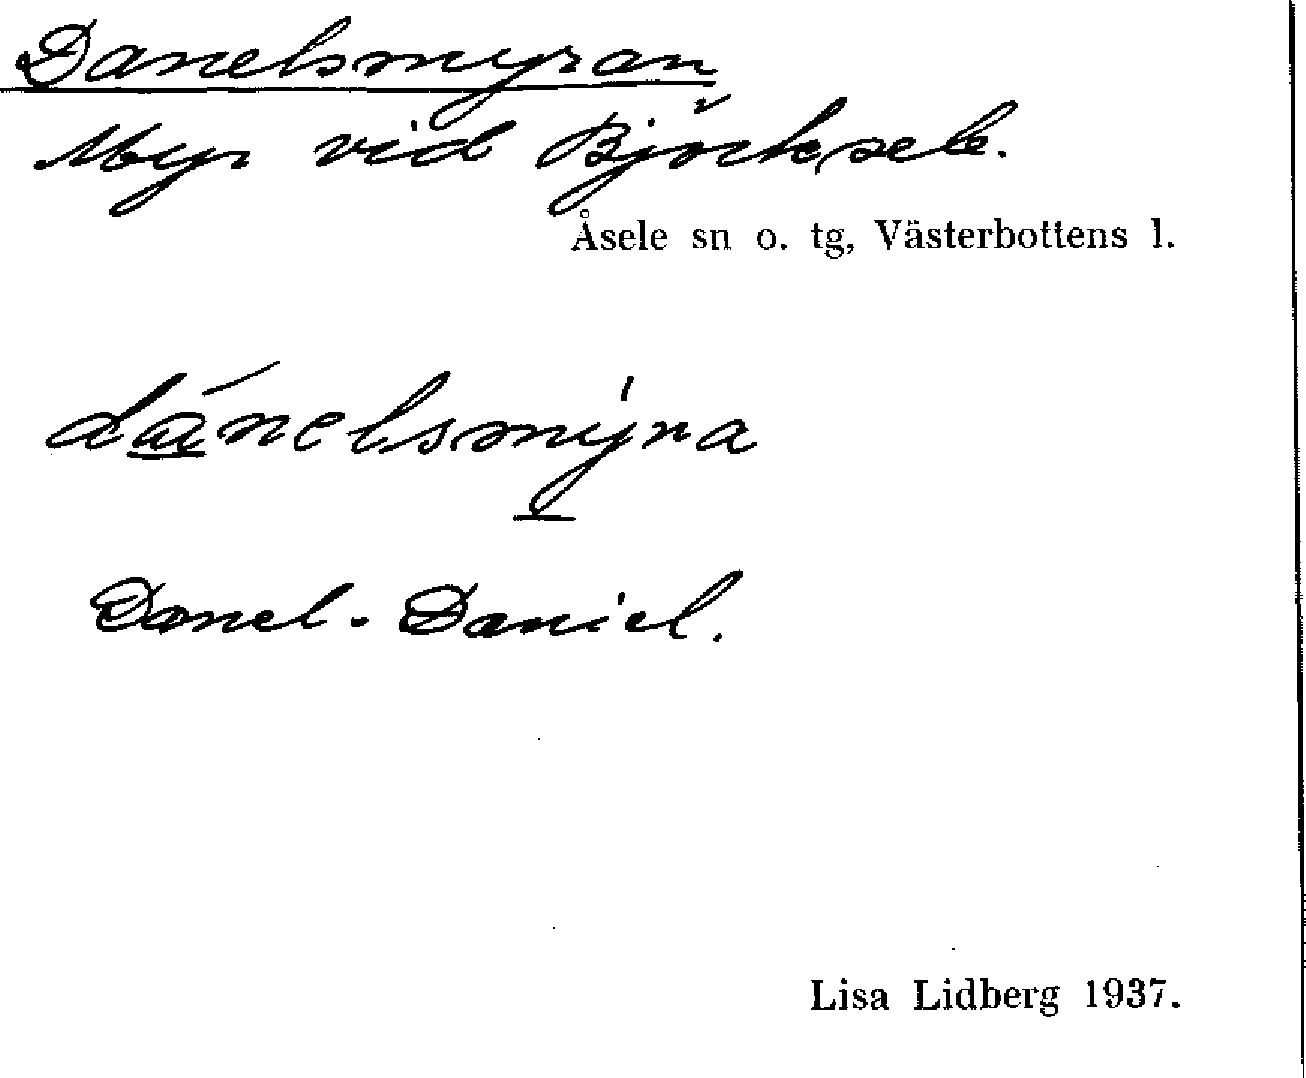 Danelsmyran
Myr vid Björksele.
Åsele sn o. tg, Västerbottens l.
dánelsmy̍ra
Danel - Daniel.
Lisa Lidberg 1937.